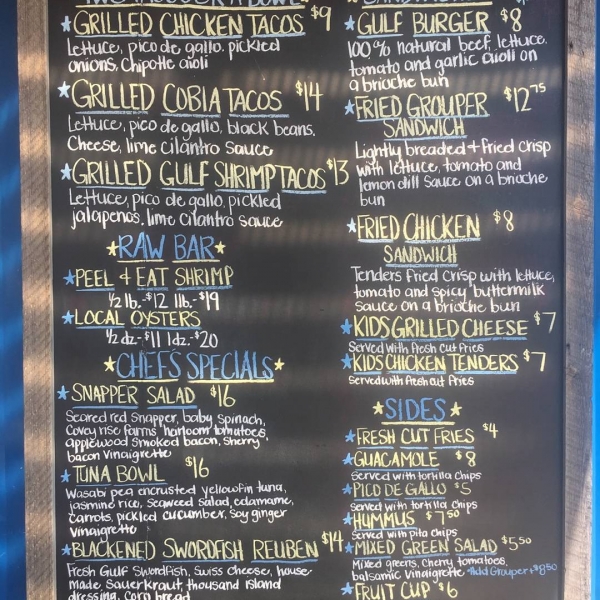 GRILLED CHICKEN TACOS $9
Lettuce, pico de gallo, pickled
onions, Chipotle aioli
GRILLED COBIA TACOS $14
Lettuce, pico de gallo, black beans,
Cheese, lime cilantro sauce
GRILLED GULF SHRIMP TACOS $13
Lettuce, pico de gallo, pickled
jalapenos, lime cilantro sauce
RAW BAR
PEEL & EAT SHRIMP
1/2 lb.-$12 1lb.-$19
LOCAL OYSTERS
1/2 dz.-$11 1dz.-$20
CHEFS SPECIALS
SNAPPER SALAD $16
Seared red snapper, baby spinach,
Covey rise farms heirloom tomatoes,
applewood smoked bacon, sherry
bacon vinaigrette
TUNA BOWL $16
Wasabi pea encrusted yellowfin tuna,
jasmine rice, seaweed salad, edamame,
carrots, pickled cucumber, soy ginger
vinaigrette
BLACKENED SWORDFISH REUBEN $14
Fresh Gulf Swordfish, Swiss cheese, house
made sauerkraut, thousand island
dressing, corn bread
GULF BURGER $8
100% natural beef, lettuce,
tomato and garlic aioli on
a brioche bun
FRIED GROUPER $12.75
SANDWICH
Lightly breaded + fried crisp
with lettuce, tomato and
lemon dill sauce on a brioche
bun
FRIED CHICKEN $8
SANDWICH
Tenders fried crisp with lettuce,
tomato and spicy buttermilk
sauce on a brioche bun
KIDS GRILLED CHEESE $7
Served with fresh cut fries
KIDS CHICKEN TENDERS $7
Served with fresh cut fries
SIDES
FRESH CUT FRIES $4
GUACAMOLE $8
Served with tortilla chips
PICO DE GALLO $5
Served with tortilla chips
HUMMUS $7.50
Served with pita chips
MIXED GREEN SALAD $5.50
Mixed greens, cherry tomatoes,
balsamic vinaigrette *Add Grouper +$8.50
FRUIT CUP $6